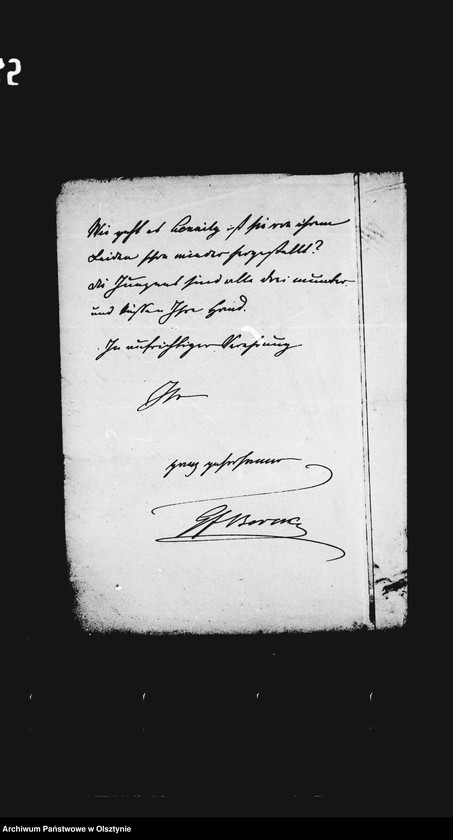 52
Wie geht es ist sie von ihrem
Leiden schon wieder hergestellt?
die Jungens sind alle drei munter
und küssen Ihre Hand.
In aufrichtiger Verehrung
Ihr
ganz gehorsamer
Archiwum Państwowe w Olsztynie